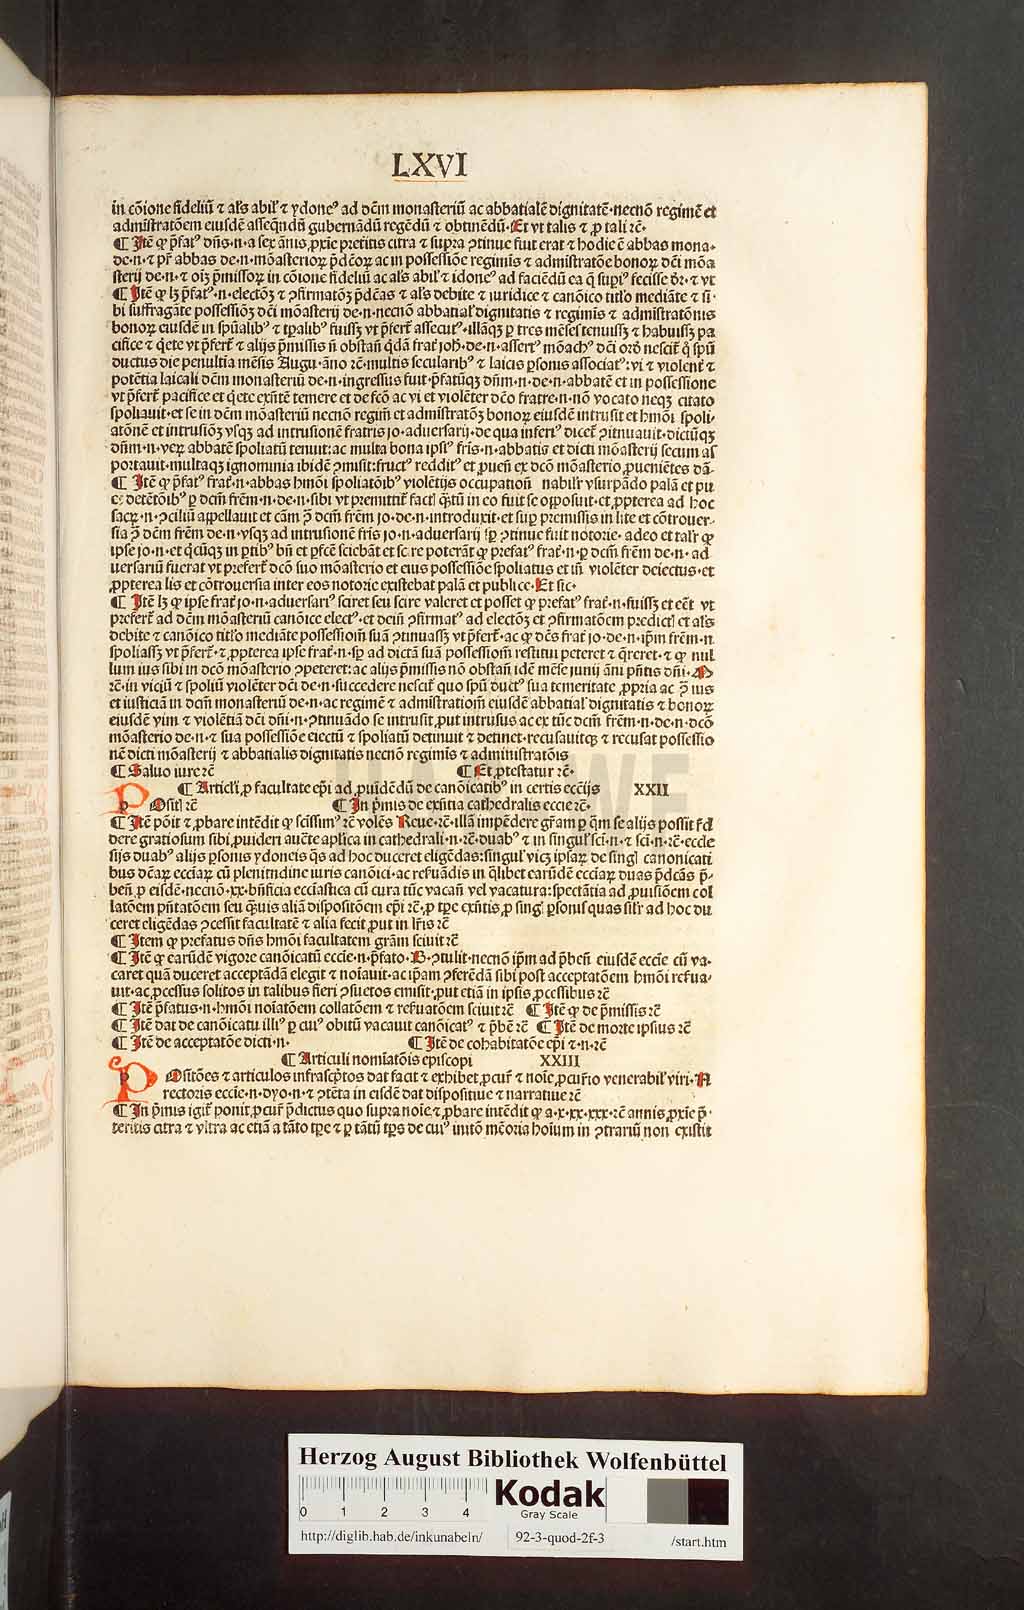 LXVI
in cōione fideliū ⁊ al's abil' ⁊ ydoneꝰ ad dc̄m monasteriū ac abbatialē dignitatē·necnō regimē et
admīstratōem eiusdē asseqn̄dū gubernādū regēdū ⁊ obtinēdū·Et vt talis ⁊ ꝓ tali rc̄·
¶ Itē ꝙ p̄fatꝰ dn̄s·n·a sex ānis ꝓxīe preteritis citra ⁊ supra ꝯtinue fuit erat ⁊ hodie ē abbas mona-
de·n·⁊ pr̄ abbas de·n·mōasterioꝝ p̄dc̄oꝝ ac in possessiōe regimīs ⁊ admīstratōe bonoꝝ dc̄i mōa
sterij de·n·⁊ oīꝫ p̄missoꝝ in cōione fideliū ac al's abil' ⁊ idoneꝰ ad faciēdū ea q̄ supiꝰ fecisse dr̄·⁊ vt
¶ Itē ꝙ lꝫ p̄fatꝰ·n·electōꝫ ⁊ ꝯfirmatōꝫ p̄dc̄as ⁊ al's debite ⁊ iuridice ⁊ canōico titl'o mediāte ⁊ si-
bi suffragāte possessiōꝫ dc̄i mōasterij de·n·necnō abbatial' dignitatis ⁊ regimīs ⁊ admīstratōnis
bonoꝝ eiusdē in spūalibꝰ ⁊ tp̄alibꝰ fuissꝫ vt p̄fert' assecutꝰ·illāqꝫ ꝑ tres mēses tenuissꝫ ⁊ habuissꝫ pa
cifice ⁊ q̄ete vt p̄fert' ⁊ alijs p̄missis nō obstan̄ q̄dā frat' joh̄·de·n·assertꝰ mōachꝰ dc̄i ord' nescit' q̄ spū
ductus die penultīa mēsis Augu·āno rc̄·multis secularibꝰ ⁊ laicis ꝑsonis associatꝰ:vi ⁊ violent' ⁊
potētia laicali dc̄m monasteriū de·n·ingressus fuit·p̄fatūqꝫ dn̄m·n·de·n·abbatē et in possessione
vt p̄fert' pacifice et q̄ete exn̄tē temere et de fcō ac vi et violēter dc̄o fratre·n·nō vocato neqꝫ citato
spoliauit·et se in dc̄m mōasteriū necnō regim̄ et admīstratōꝫ bonoꝝ eiusdē intrusit et hmōi spoli-
atōnē et intrusiōꝫ vsqꝫ ad intrusionē fratris jo·aduersarij·de qua inferiꝰ dicet' ꝯtinuauit·dictūqꝫ
dn̄m·n·veꝝ abbatē spoliatū tenuit:ac multa bona ipsiꝰ fris·n·abbatis et dicti mōasterij secum as
portauit·multaqꝫ ignominia ibidē ꝯmisit:fructꝰ redditꝰ et ꝓuen̄ ex dcō mōasterio ꝓueniētes dā-
¶ Itē ꝙ p̄fatꝰ frat'·n·abbas hmōi spoliatōibꝰ violētijs occupation̄ nabil'r vsurpādo palā et pu
detētōibꝰ ꝑ dc̄m frēm·n·de·n·sibi vt premittit' fact' q̄tū in eo fuit se opposuit·et ꝓpterea ad hoc
sacꝝ·n·ꝯciliū appellauit et cām ꝯ dc̄m frēm jo·de·n·introduxit·et suꝑ premissis in lite et cōtrouer-
sia ꝯ dc̄m frēm de·n·vsqꝫ ad intrusionē fris jo·n·aduersarij sꝑ ꝯtinue fuit notorie·adeo et talr' ꝙ
ipse jo·n·et q̄cūqꝫ in ꝑtibꝰ bn̄ et ꝑfcē sciebāt et scire poterāt ꝙ prefatꝰ frat'·n·ꝑ dc̄m frēm de·n·ad
uersariū fuerat vt prefert' dcō suo mōasterio et eius possessiōe spoliatus et in̄ violēter deiectus·et
ꝓpterea lis et cōtrouersia inter eos notorie existebat palā et publice·Et sic·
¶ Itē lꝫ ꝙ ipse frat' jo·n·aduersariꝰ sciret seu scire valeret et posset ꝙ prefatꝰ frat'·n·fuissꝫ et eēt vt
prefert' ad dc̄m mōasteriū canōice electꝰ·et dc̄m ꝯfirmatꝰ ad electōꝫ et ꝯfirmatōem predict' et al's
debite ⁊ canōico titl'o mediāte possessiom̄ suā ꝯtinuassꝫ vt p̄fert'·ac ꝙ dc̄s frat' jo·de·n·ip̄m frēm·n·
spoliassꝫ vt p̄fert'·⁊ ꝓpterea ipse frat'·n·sꝑ ad dictā suā possessiom̄ restitui peteret ⁊ q̄reret·⁊ ꝙ nul
lum ius sibi in dcō mōasterio ꝯpeteret:ac alijs p̄missis nō obstan̄ idē mēse junij āni pn̄tis dn̄i·M
rc̄·in viciū ⁊ spoliū violēter dc̄i de·n·succedere nescit' quo spū ductꝰ sua temeritate ꝓpria ac ꝯ ius
et iusticiā in dc̄m monasteriū de·n·ac regimē ⁊ admīstratiom̄ eiusdē abbatial' dignitatis ⁊ bonoꝝ
eiusdē vim ⁊ violētiā dc̄i dn̄i·n·ꝯtinuādo se intrusit ꝓut intrusus ac ex tūc dc̄m frēm·n·de·n·dcō
mōasterio de·n·⁊ sua possessiōe eiectū ⁊ spoliatū detinuit ⁊ detinet·recusauitqꝫ ⁊ recusat possessio
nē dicti mōasterij ⁊ abbatialis dignitatis necnō regimīs ⁊ admīnistratōis
¶ Saluo iure rc̄ ¶ Et ꝓtestatur rc̄·
¶ Articl'i ꝓ facultate ep̄i ad ꝓuidēdū de canōicatibꝰ in certis ecc̄ijs XXII
p Osit' rc̄ ¶ In p̄mis de exn̄tia cathedralis eccie rc̄·
¶ Itē pōit ⁊ ꝓbare intēdit ꝙ scissimꝰ rc̄ volēs Reue·rc̄·illā impēdere gr̄am ꝑ q̄m se alijs possit r'd
dere gratiosum sibi ꝓuideri aucte aplica in cathedrali·n·rc̄·duabꝰ ⁊ in singul' sci·n·⁊ sci·n·rc̄·eccle
sijs duabꝰ alijs ꝑsonis ydoneis q̄s ad hoc duceret eligēdas:singul' vicꝫ ipsaꝝ de singl' canonicati
bus dc̄aꝝ ecciaꝝ cū plenitudine iuris canōici·ac reẜuādis in q̄libet earūdē ecciaꝝ duas p̄dc̄as p̄-
ben̄ ꝑ eisdē·necnō·xx·bn̄ficia ecciastica cū cura tūc vacan̄ vel vacatura:spectātia ad ꝓuisiōem col
latōem pn̄tatōem seu q̄uis aliā dispositōem ep̄i rc̄·ꝓ tp̄e exn̄tis ꝓ singl' ꝑsonis quas sil'r ad hoc du
ceret eligēdas ꝯcessit facultatē ⁊ alia fecit ꝓut in lr̄is rc̄
¶ Item ꝙ prefatus dn̄s hmōi facultatem grām sciuit rc̄
¶ Itē ꝙ earūdē vigore canōicatū eccie·n·p̄fato·B·ꝯtulit·necnō ip̄m ad p̄ben̄ eiusdē eccie cū va-
caret quā duceret acceptādā elegit ⁊ noīauit·ac ip̄am ꝯferēdā sibi post acceptatōem hmōi reẜua-
uit·ac ꝓcessus solitos in talibus fieri ꝯsuetos emisit·ꝓut etiā in ipsis ꝓcessibus rc̄
¶ Itē p̄fatus·n·hmōi noīatōem collatōem ⁊ reẜuatōem sciuit rc̄ ¶ Itē ꝙ de p̄missis rc̄
¶ Itē dat de canōicatu illiꝰ ꝑ cuiꝰ obitū vacauit canōicatꝰ ⁊ p̄bē rc̄ ¶ Itē de morte ipsius rc̄
¶ Itē de acceptatōe dicti·n· ¶ Itē de cohabitatōe ep̄i ⁊·n·rc̄
¶ Articuli nomīatōis episcopi XXIII
p Ositōes ⁊ articulos infrascp̄tos dat facit ⁊ exhibet ꝓcur' ⁊ noīe ꝓcur'io venerabil' viri·N
rectoris eccie·n·dyo·n·⁊ ꝯtēta in eisdē dat dispositiue ⁊ narratiue rc̄
¶ In p̄mis igit' ponit ꝓcur' p̄dictus quo supra noīe ⁊ ꝓbare intēdit ꝙ a·x·xx·xxx·rc̄ annis ꝓxīe p̄-
teritis citra ⁊ vltra ac etiā a tāto tp̄e ⁊ ꝑ tātū tp̄s de cuiꝰ initō mēoria hoīum in ꝯtrariū non existit
Herzog August Bibliothek Wolfenbüttel
0 1 2 3 4
Kodak
Gray Scale
http://diglib.hab.de/inkunabeln/ 92-3-quod-2f-3 /start.htm